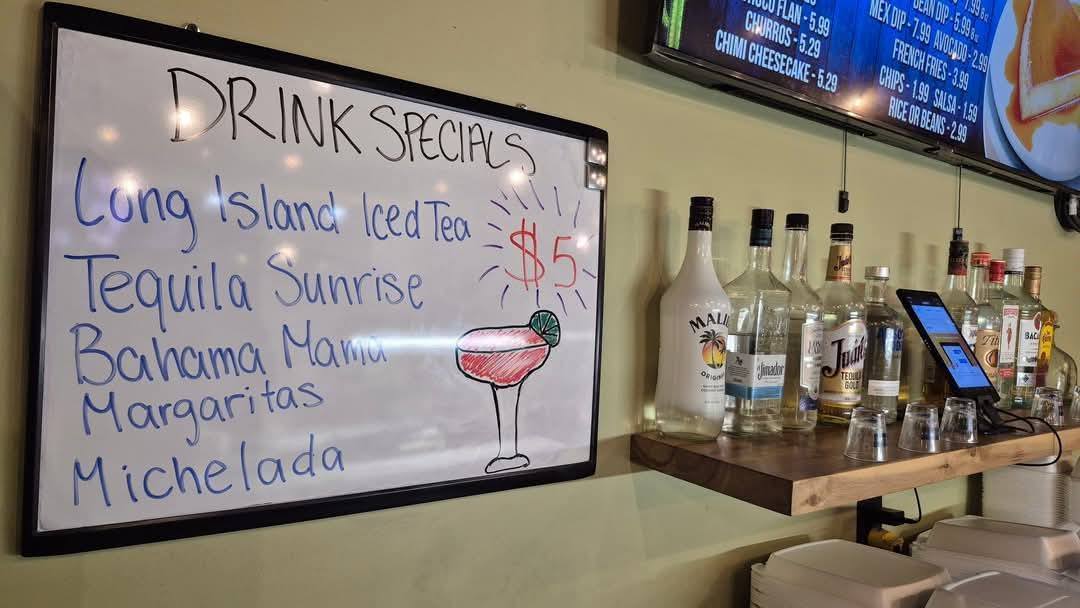 DRINK SPECIALS
Long Island Iced Tea
$5
Tequila Sunrise
Bahama Mama
Margaritas
Michelada
FLAN - 5.99
CHURROS - 5.29
CHIMI CHEESECAKE - 5.29
BEAN DIP - 5.99
MEX DIP - 7.99 AVOCADO - 2.99
FRENCH FRIES - 3.99
CHIPS - 1.99 SALSA - 1.59
RICE OR BEANS - 2.99
ORIGINAL
el Jimador
TEQUILA
GOLD